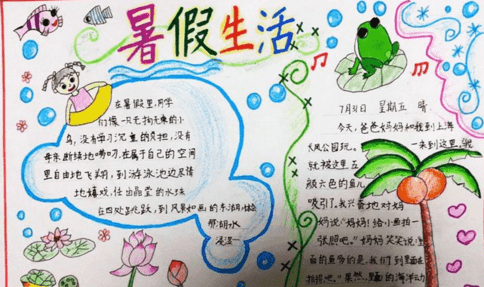 暑假生活
在暑假里,同学
们像一只无拘无束的小
鸟,没有学习沉重的负担,没有
母亲断续地唠叨,在属于自己的空间
里自由地飞翔,到游泳池边尽情
地嬉戏,任出晶莹的水珠
在四处飞跃,到风景如画的东湖
那湖水
7月31日 星期五 晴
今天,爸爸妈妈和我到上海
大风公园玩。
一来到这里,我
就被这里五
颜六色的鱼儿
吸引了。我兴奋地对妈
妈说“妈妈!给小鱼拍一
张照吧。”妈妈笑笑说:
面的鱼多的是,我们到里面在
拍照吧。”果然,里面的海洋动